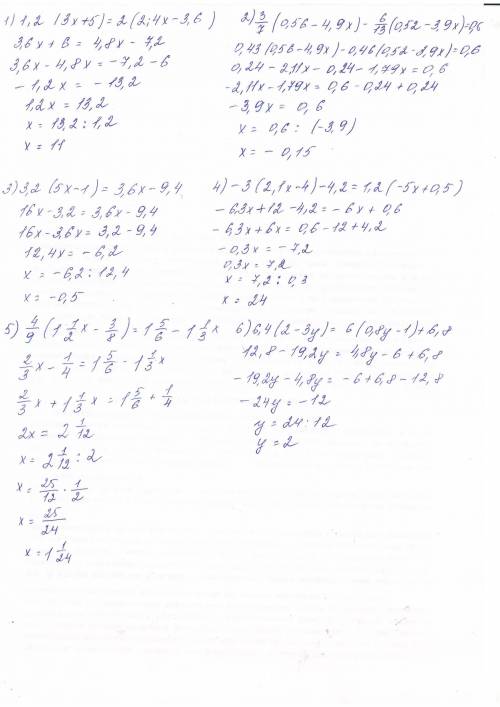 1) 1,2 (3x+5) = 2 (2,4x - 3,6)
3,6x + 6 = 4,8x - 7,2
3,6x - 4,8x = -7,2 - 6
- 1,2x = - 13,2
1,2x = 13,2
x = 13,2 : 1,2
x = 11
2) 3/7 (0,56 - 4,9x) - 6/13 (0,52 - 3,9x) = 0,6
0,43 (0,56 - 4,9x) - 0,46 (0,52 - 3,9x) = 0,6
0,24 - 2,11x - 0,24 - 1,79x = 0,6
-2,11x - 1,79x = 0,6 - 0,24 + 0,24
-3,9x = 0,6
x = 0,6 : (-3,9)
x = - 0,15
3) 3,2 (5x - 1) = 3,6x - 9,4
16x - 3,2 = 3,6x - 9,4
16x - 3,6x = 3,2 - 9,4
12,4x = - 6,2
x = -6,2 : 12,4
x = -0,5
4) -3 (2,1x - 4) - 4,2 = 1,2 (-5x + 0,5)
- 6,3x + 12 - 4,2 = - 6x + 0,6
- 6,3x + 6x = 0,6 - 12 + 4,2
- 0,3x = - 7,2
0,3x = 7,2
x = 7,2 : 0,3
x = 24
5) 4/9 (1 1/2 x - 3/8) = 1 5/6 - 1 1/3 x
2/3 x - 1/4 = 1 5/6 - 1 1/3 x
2/3 x + 1 1/3 x = 1 5/6 + 1/4
2x = 2 1/12
x = 2 1/12 : 2
x = 25/12 · 1/2
x = 25/24
x = 1 1/24
6) 6,4 (2 - 3y) = 6 (0,8y - 1) + 6,8
12,8 - 19,2y = 4,8y - 6 + 6,8
- 19,2y - 4,8y = - 6 + 6,8 - 12,8
- 24y = - 12
y = 24 · 12
y = 2